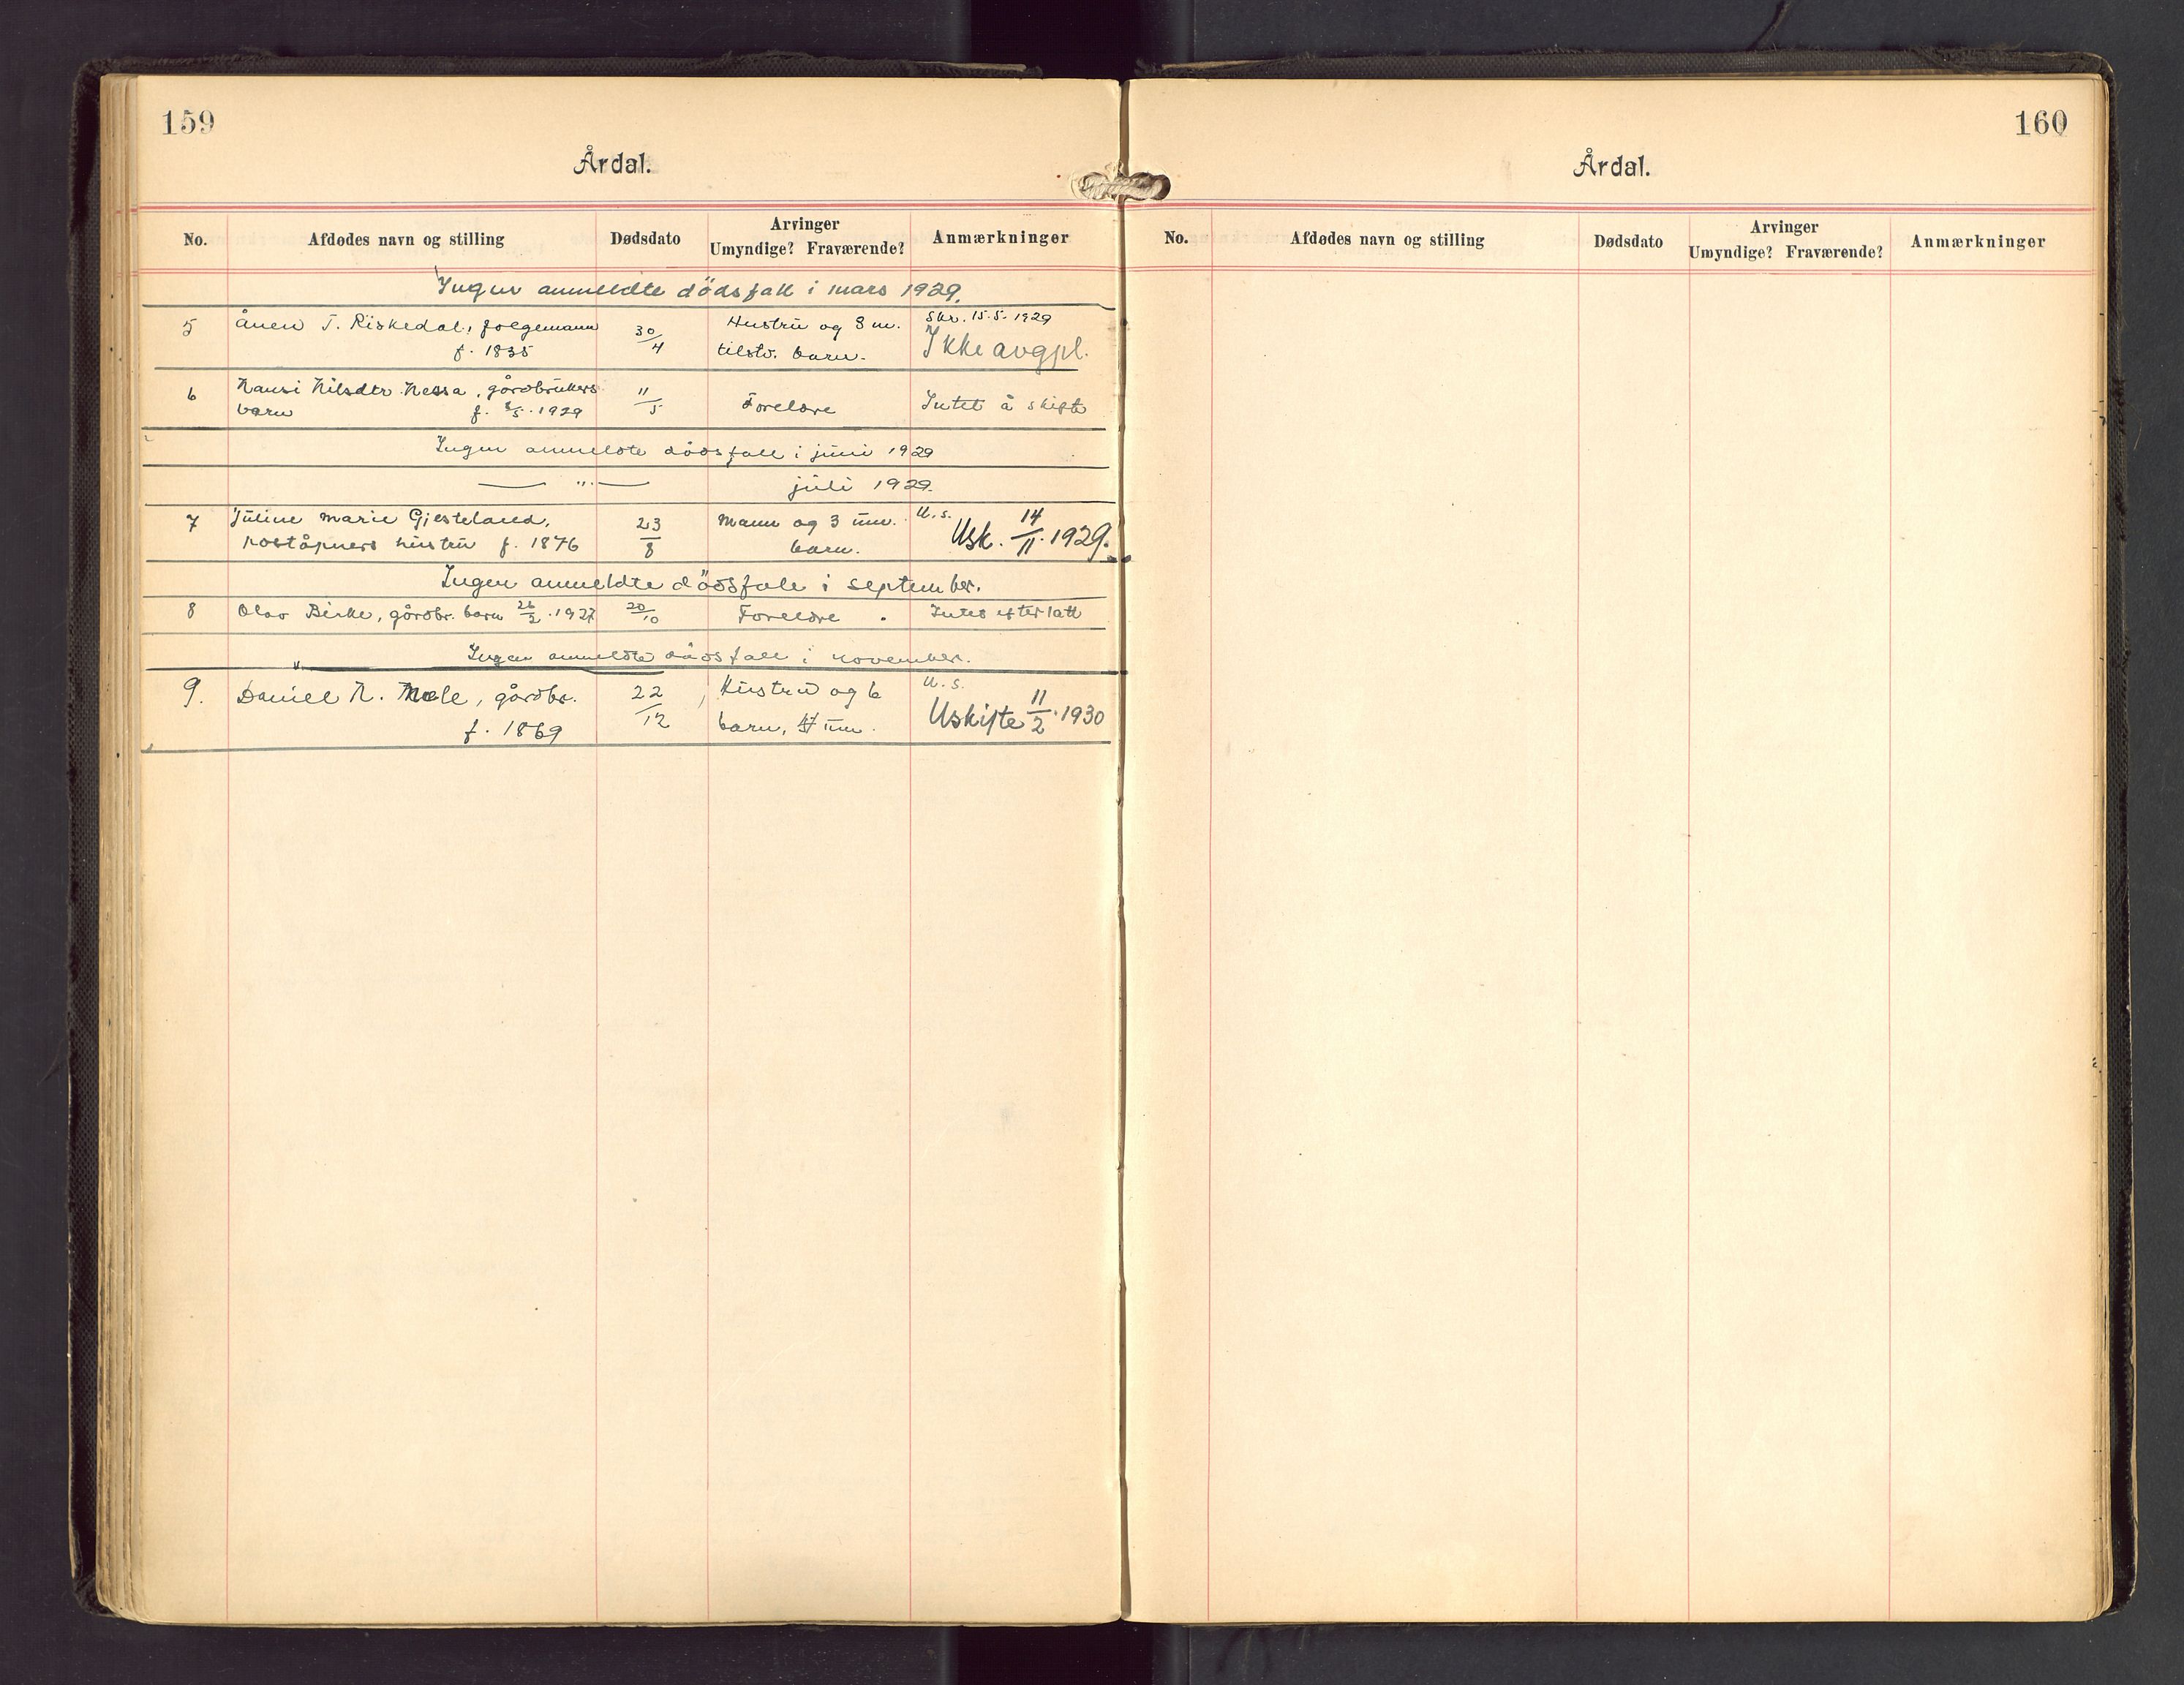 159
Årdal.
No. Afdødes navn og stilling Dødsdato Arvinger Umyndige? Fraværende? Anmærkninger
Ingen anmeldte dödsfall i mars 1929.
5 Ånen T. Riskedal, folgemann 30/4 Hustru og 8 m. Skr. 15.5.1929
f. 1835 tilstv. barn. Ikke avgpl.
6 Nansi Nilsdtr. Nessa, gårdbrukers 11/5 Foreldre Intet å skifte
barn f. 8/5.1929
Ingen anmeldte dödsfall i juni 1929
— " — juli 1929.
7 Juline Marie Gjesteland, 23/8 Mann og 3 um. U.s.
poståpners hustru f. 1876 barn. Usk. 14/11.1929.
Ingen anmeldte dödsfall i september.
8 Olav Birke, gårdbr. barn 26/2.1927 20/10 Foreldre Intet efterlatt
Ingen anmeldte dödsfall i november.
9. Daniel N. Mæle, gårdbr. 22/12 Hustru og 6 U.s.
f. 1869 barn, um. Uskifte 11/2.1930
160
Årdal.
No. Afdødes navn og stilling Dødsdato Arvinger Umyndige? Fraværende? Anmærkninger